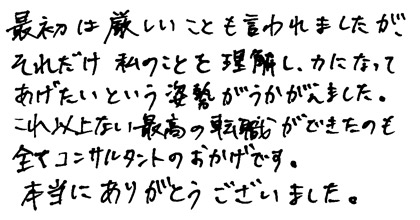 最初は厳しいことも言われましたが、
それだけ 私のことを理解し、力になって
あげたいという姿勢がうかがえました。
これ以上ない最高の転職ができたのも
全てコンサルタントのおかげです。
本当にありがとうございました。